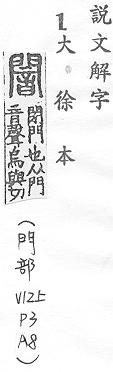 説文解字
1大徐本
闇
閉門也从門
音聲烏紺切
(門部 V12上 P3 A8)